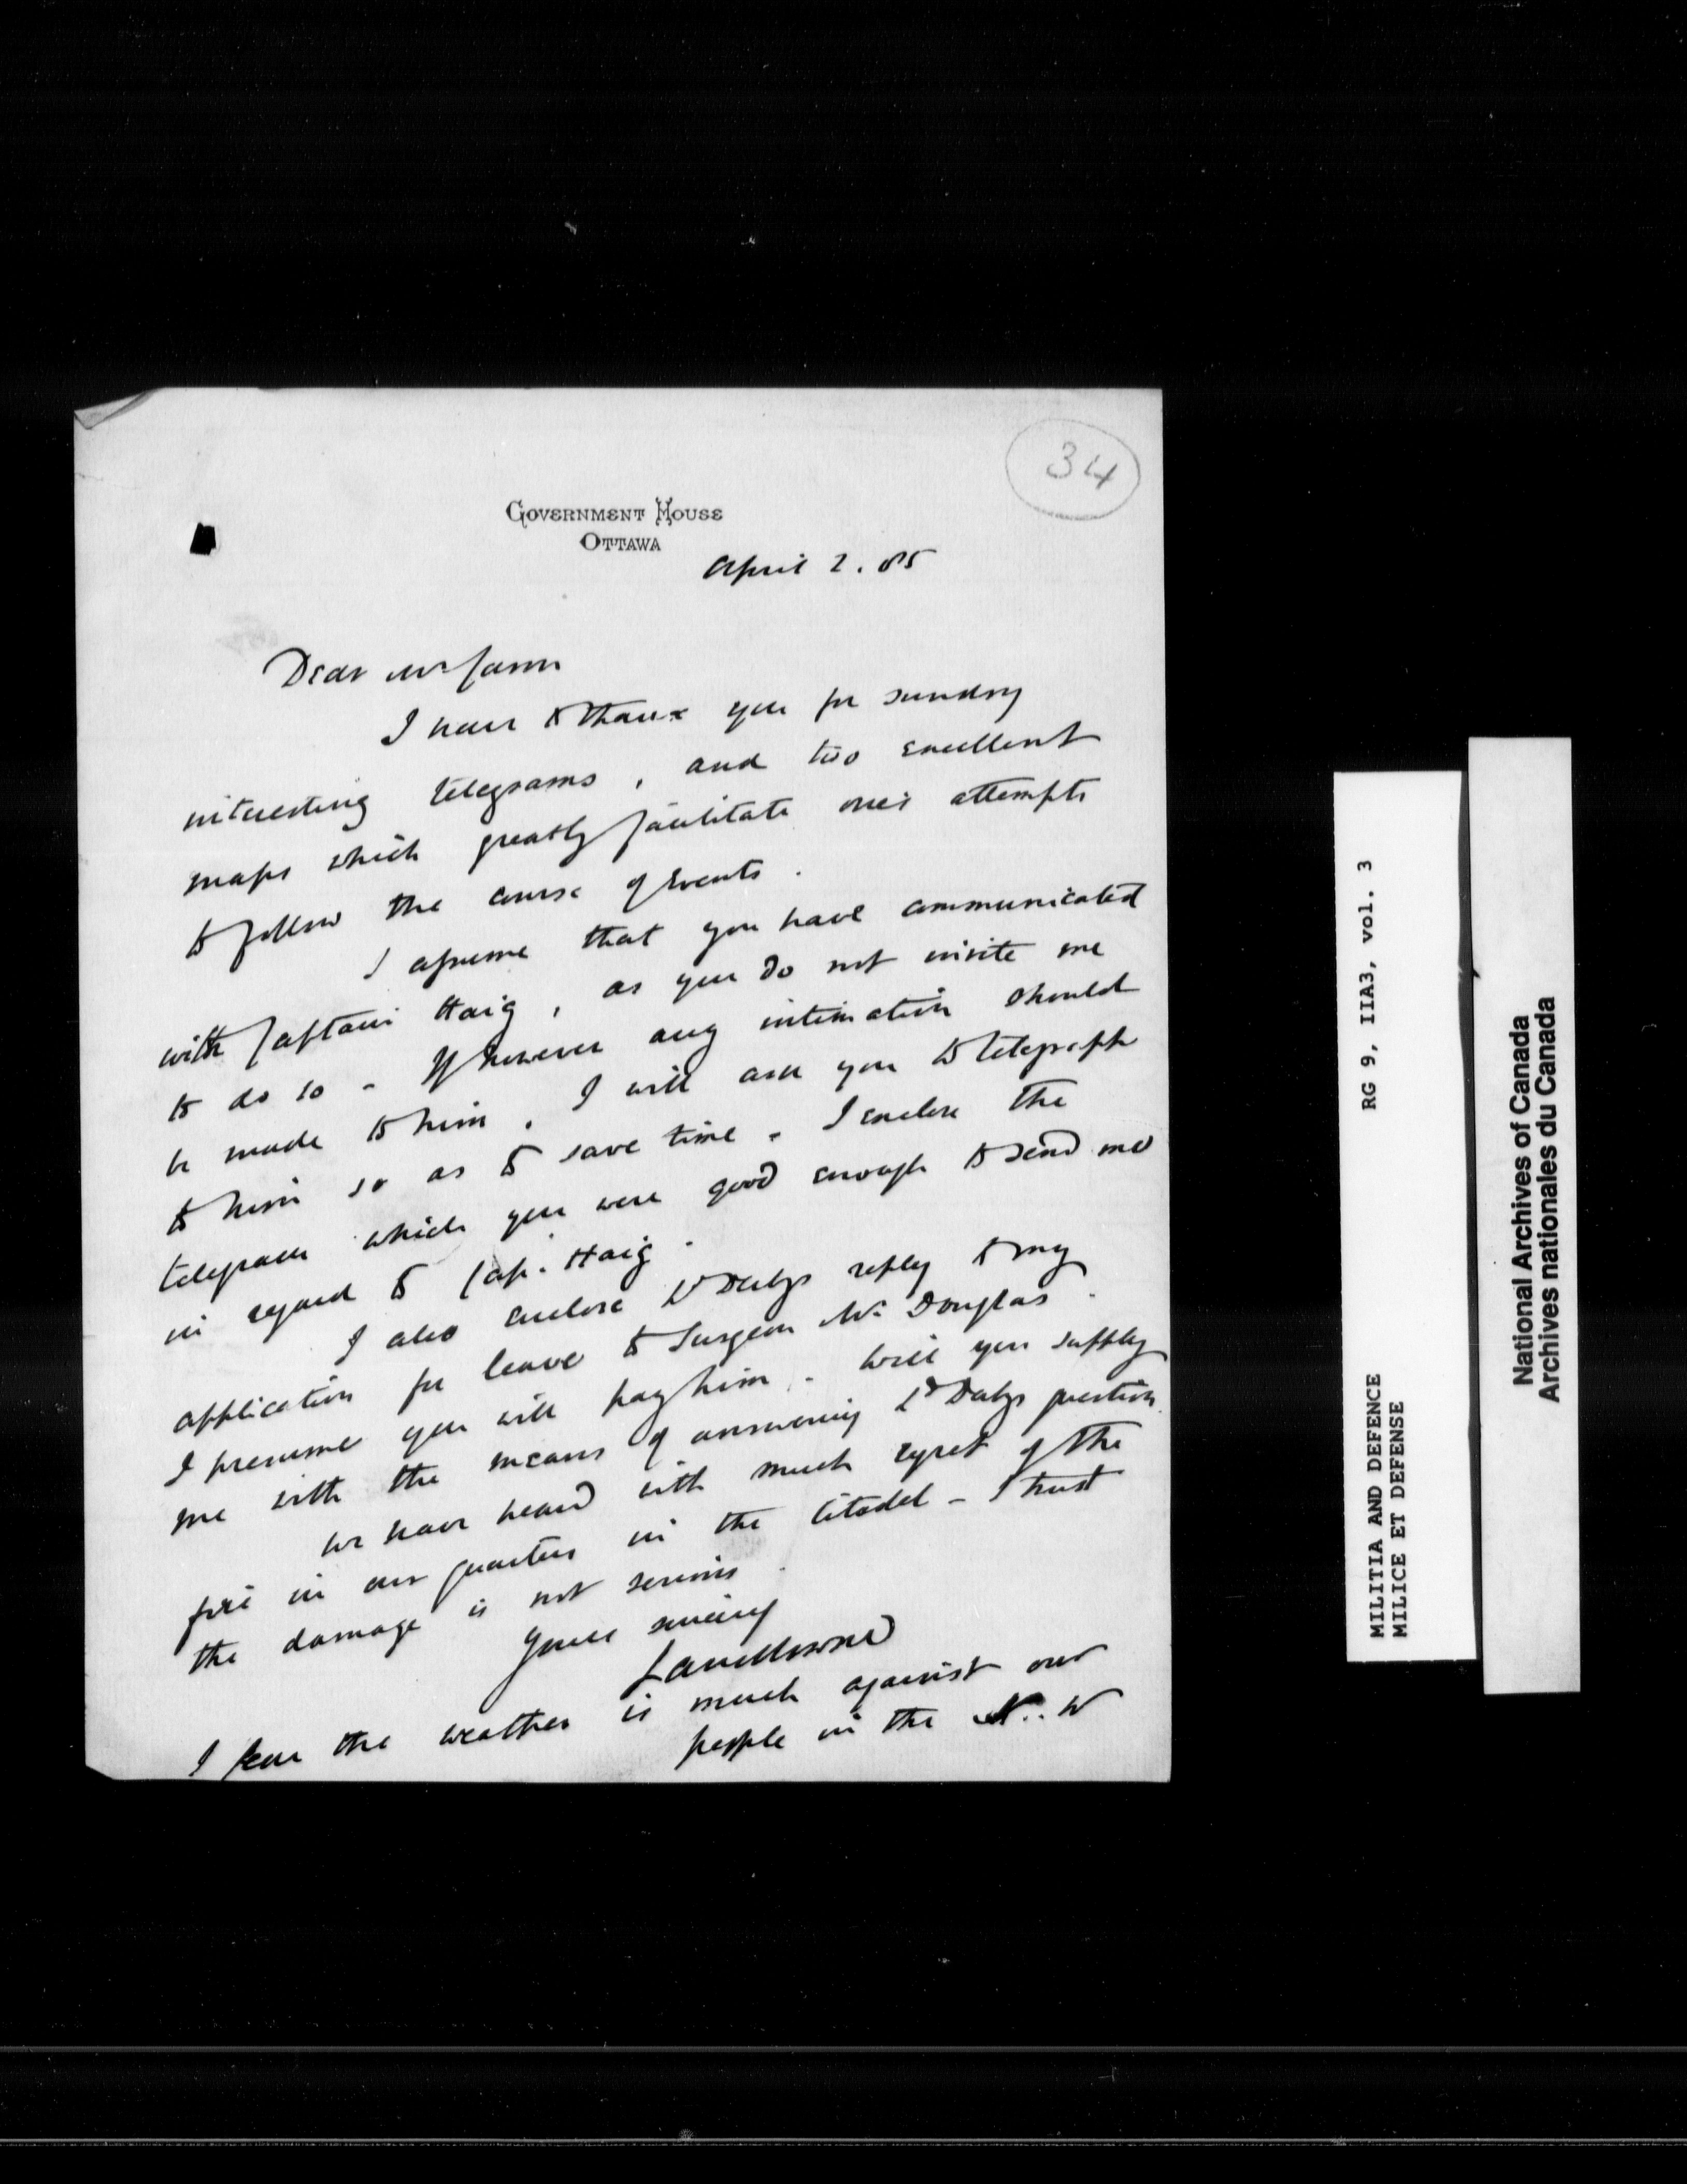 34
GOVERNMENT HOUSE
OTTAWA
April 2. 85
Dear Mr Caron
I have to thank you for sundry
interesting telegrams, and two excellent
maps which greatly facilitate one's attempts
to follow the course of events.
I assume that you have communicated
with Captain Haig, as you do not invite me
to do so - If however any intimation should
be made to him, I will ask you to telegraph
to him so as to save time - I enclose the
telegram which you were good enough to send me
in regard to Cap. Haig.
I also enclose Ld Derby's reply to my
application for leave to Surgeon Mr Douglas.
I presume you will pay him - Will you supply
me with the means of answering Ld Derby's question.
We have heard with much regret of the
fire in our quarters in the Citadel - I trust
the damage is not serious.
Yours sincerely
Lansdowne
I fear the weather is much against our
people in the N.W
MILITIA AND DEFENCE RG 9, IIA3, vol. 3
MILICE ET DEFENSE
National Archives of Canada
Archives nationales du Canada